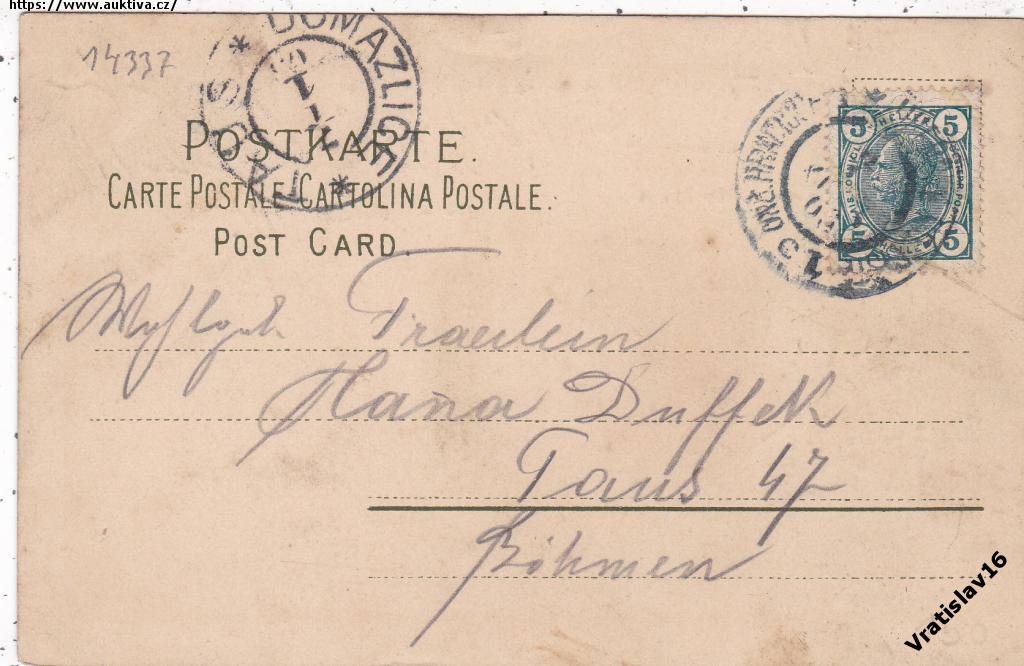 https://www.auktiva.cz/
14337
DOMAZLICE
* TAUS *
POSTKARTE.
CARTE POSTALE. CARTOLINA POSTALE.
POST CARD.
5 HELLER 5
5 HELLER 5
Fraeulein
Hana Duffek
Taus 47
Böhmen
Vratislav16